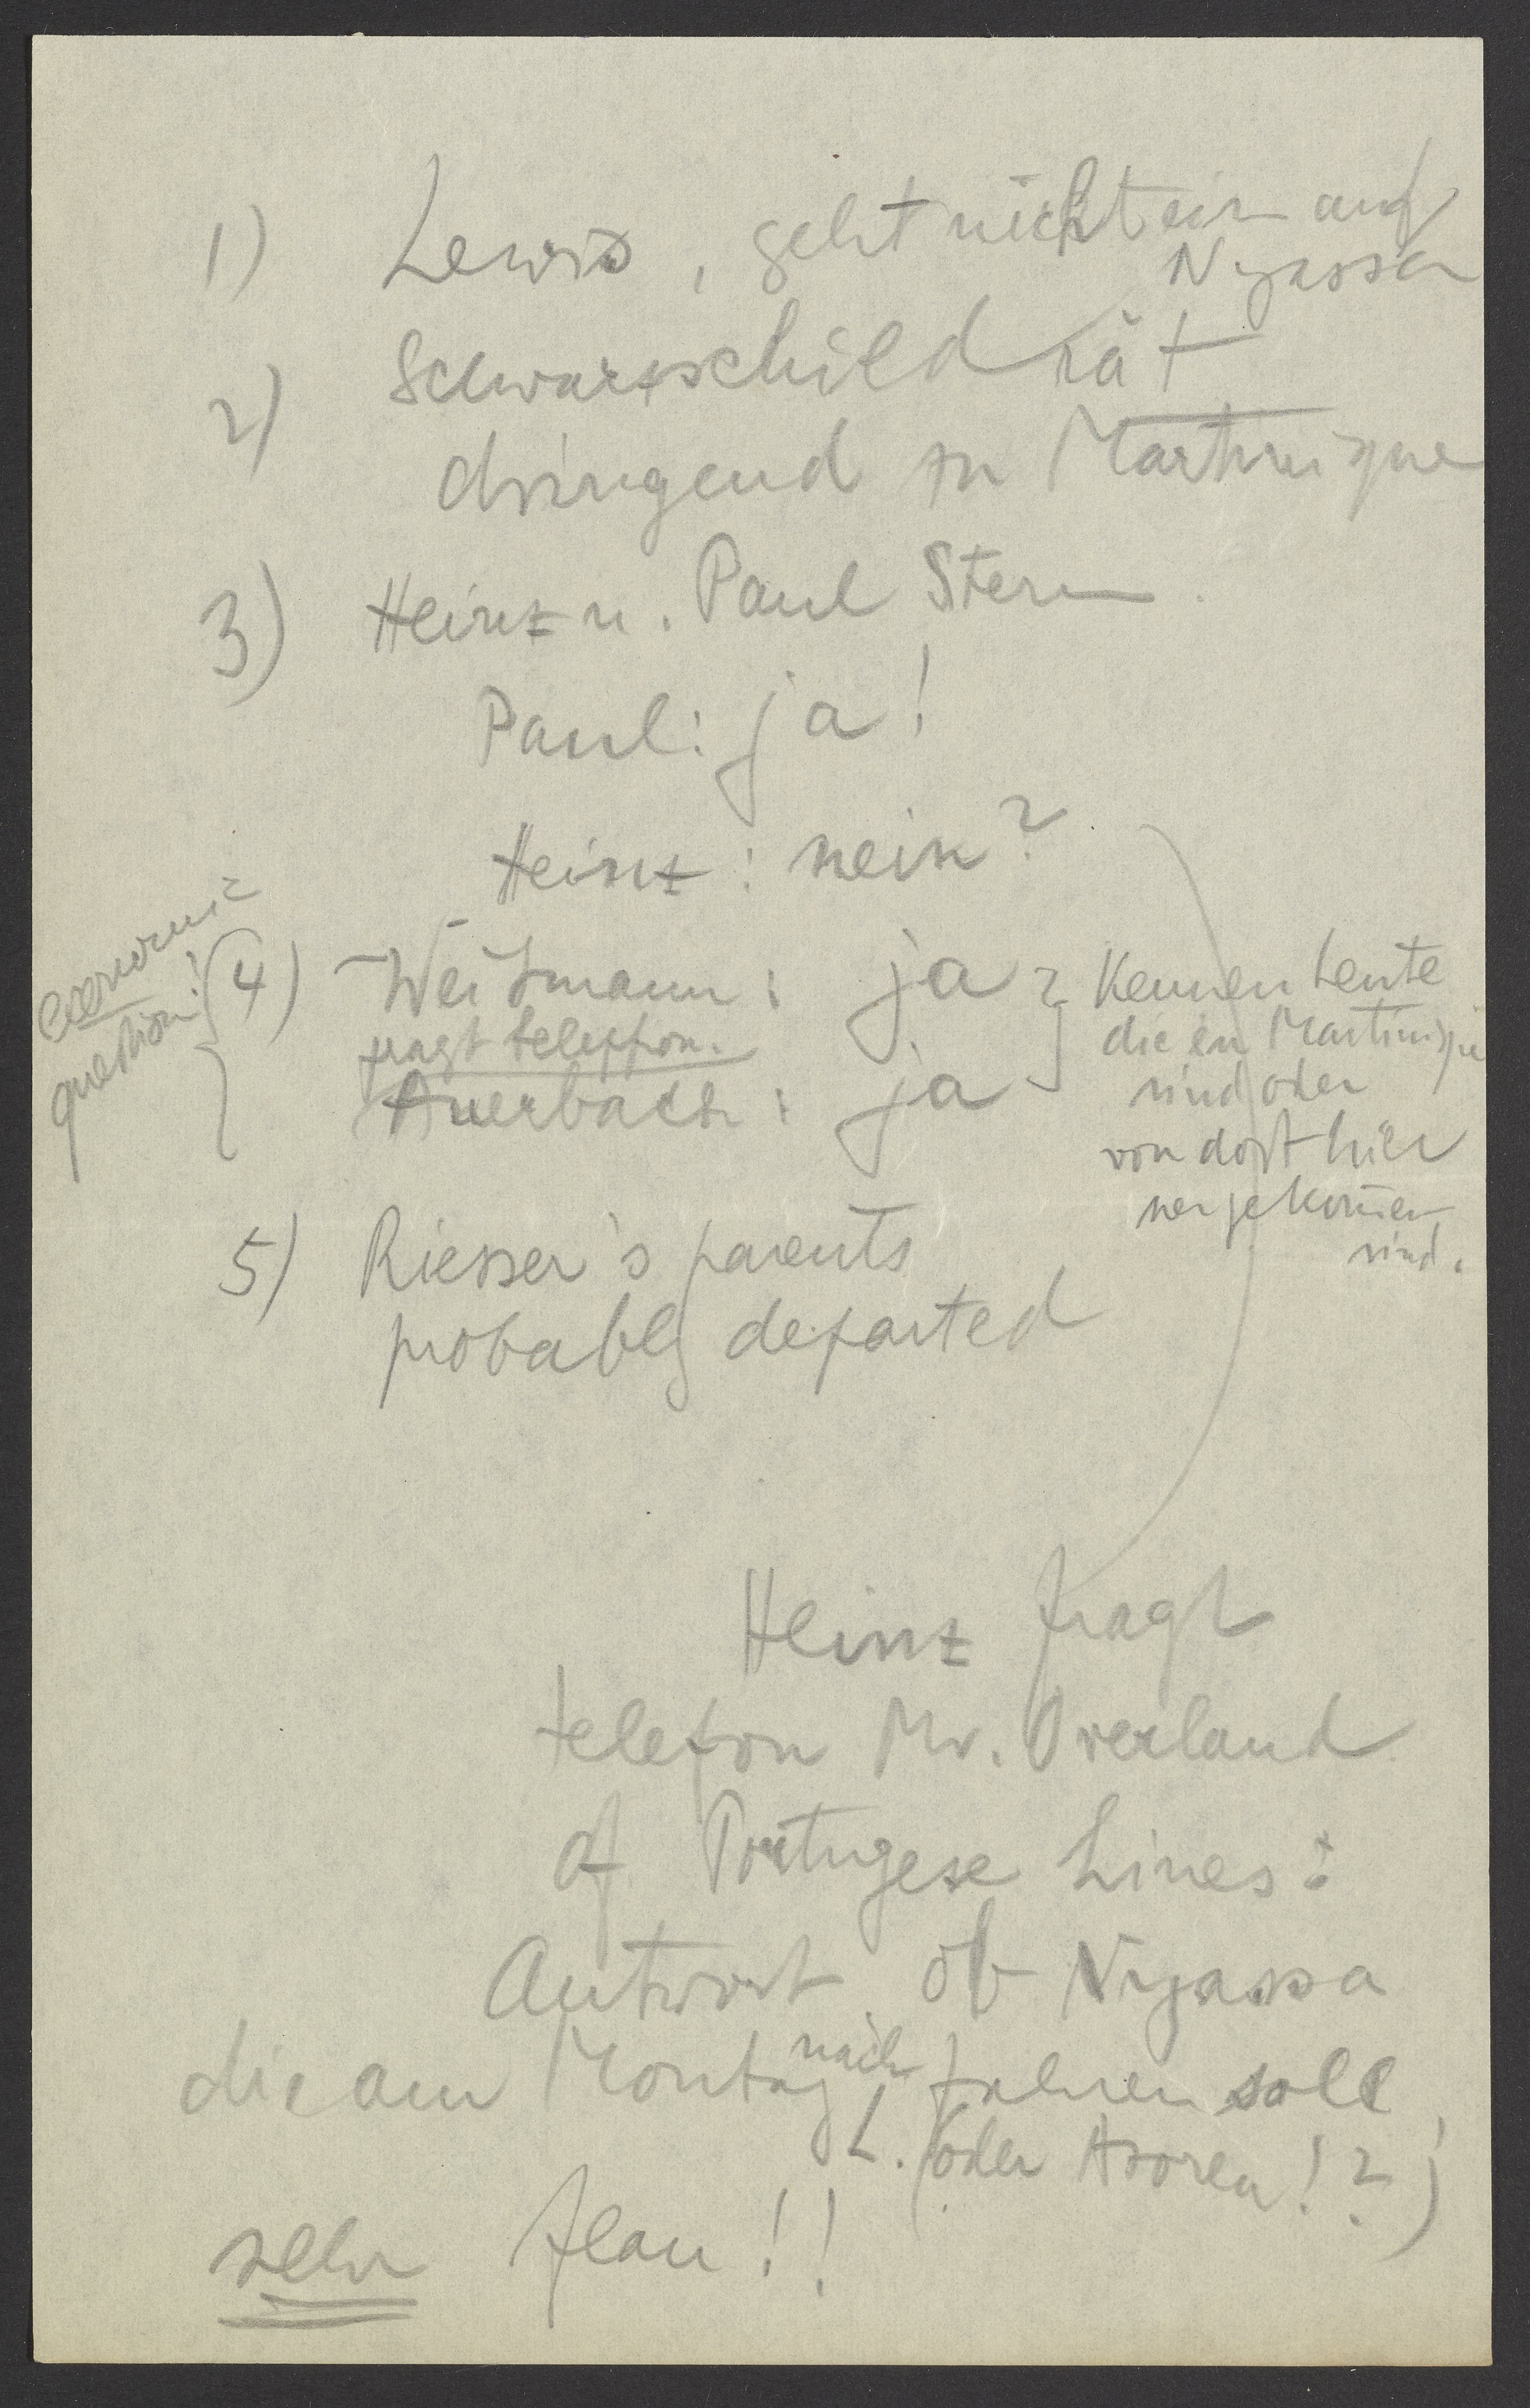 1) Lewis, geht nicht ein auf
Nyassa
2) Schwarzschild rät
dringend zu Martinique
3) Heinz u. Paul Stern.
Paul: ja!
Heinz: nein?
economic
question!
4) Weitmann: ja
fragt telephon.
Auerbach: ja
Kennen Leute
die in Martinique
sind oder
von dort hier
her gekom̄en
sind.
5) Riesser's parents
probably departed
Heinz fragt
telefon Mr. Overland
of Portugese Lines:
Antwort ob Nyassa
die am Montag nach L. fahren soll,
(oder Azoren!?)
sehr flau!!